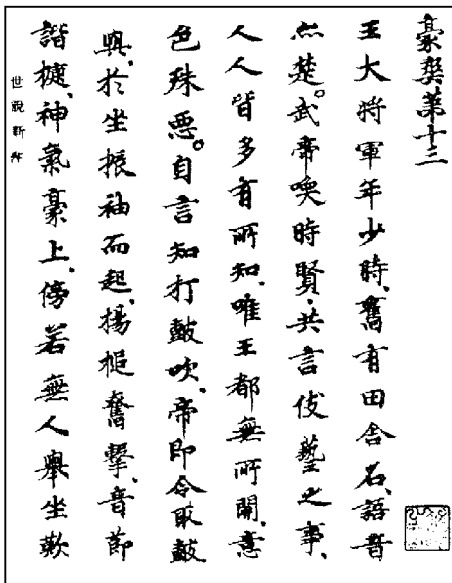 豪爽第十三
王大將軍年少時、舊有田舍名、語音
亦楚。武帝喚時賢、共言伎藝之事、
人人皆多有所知、唯王都無所關、意
色殊惡。自言知打鼓吹、帝即令取鼓
與、於坐振袖而起、揚槌奮擊、音節
諧捷、神氣豪上、傍若無人、舉坐歎
世說新語